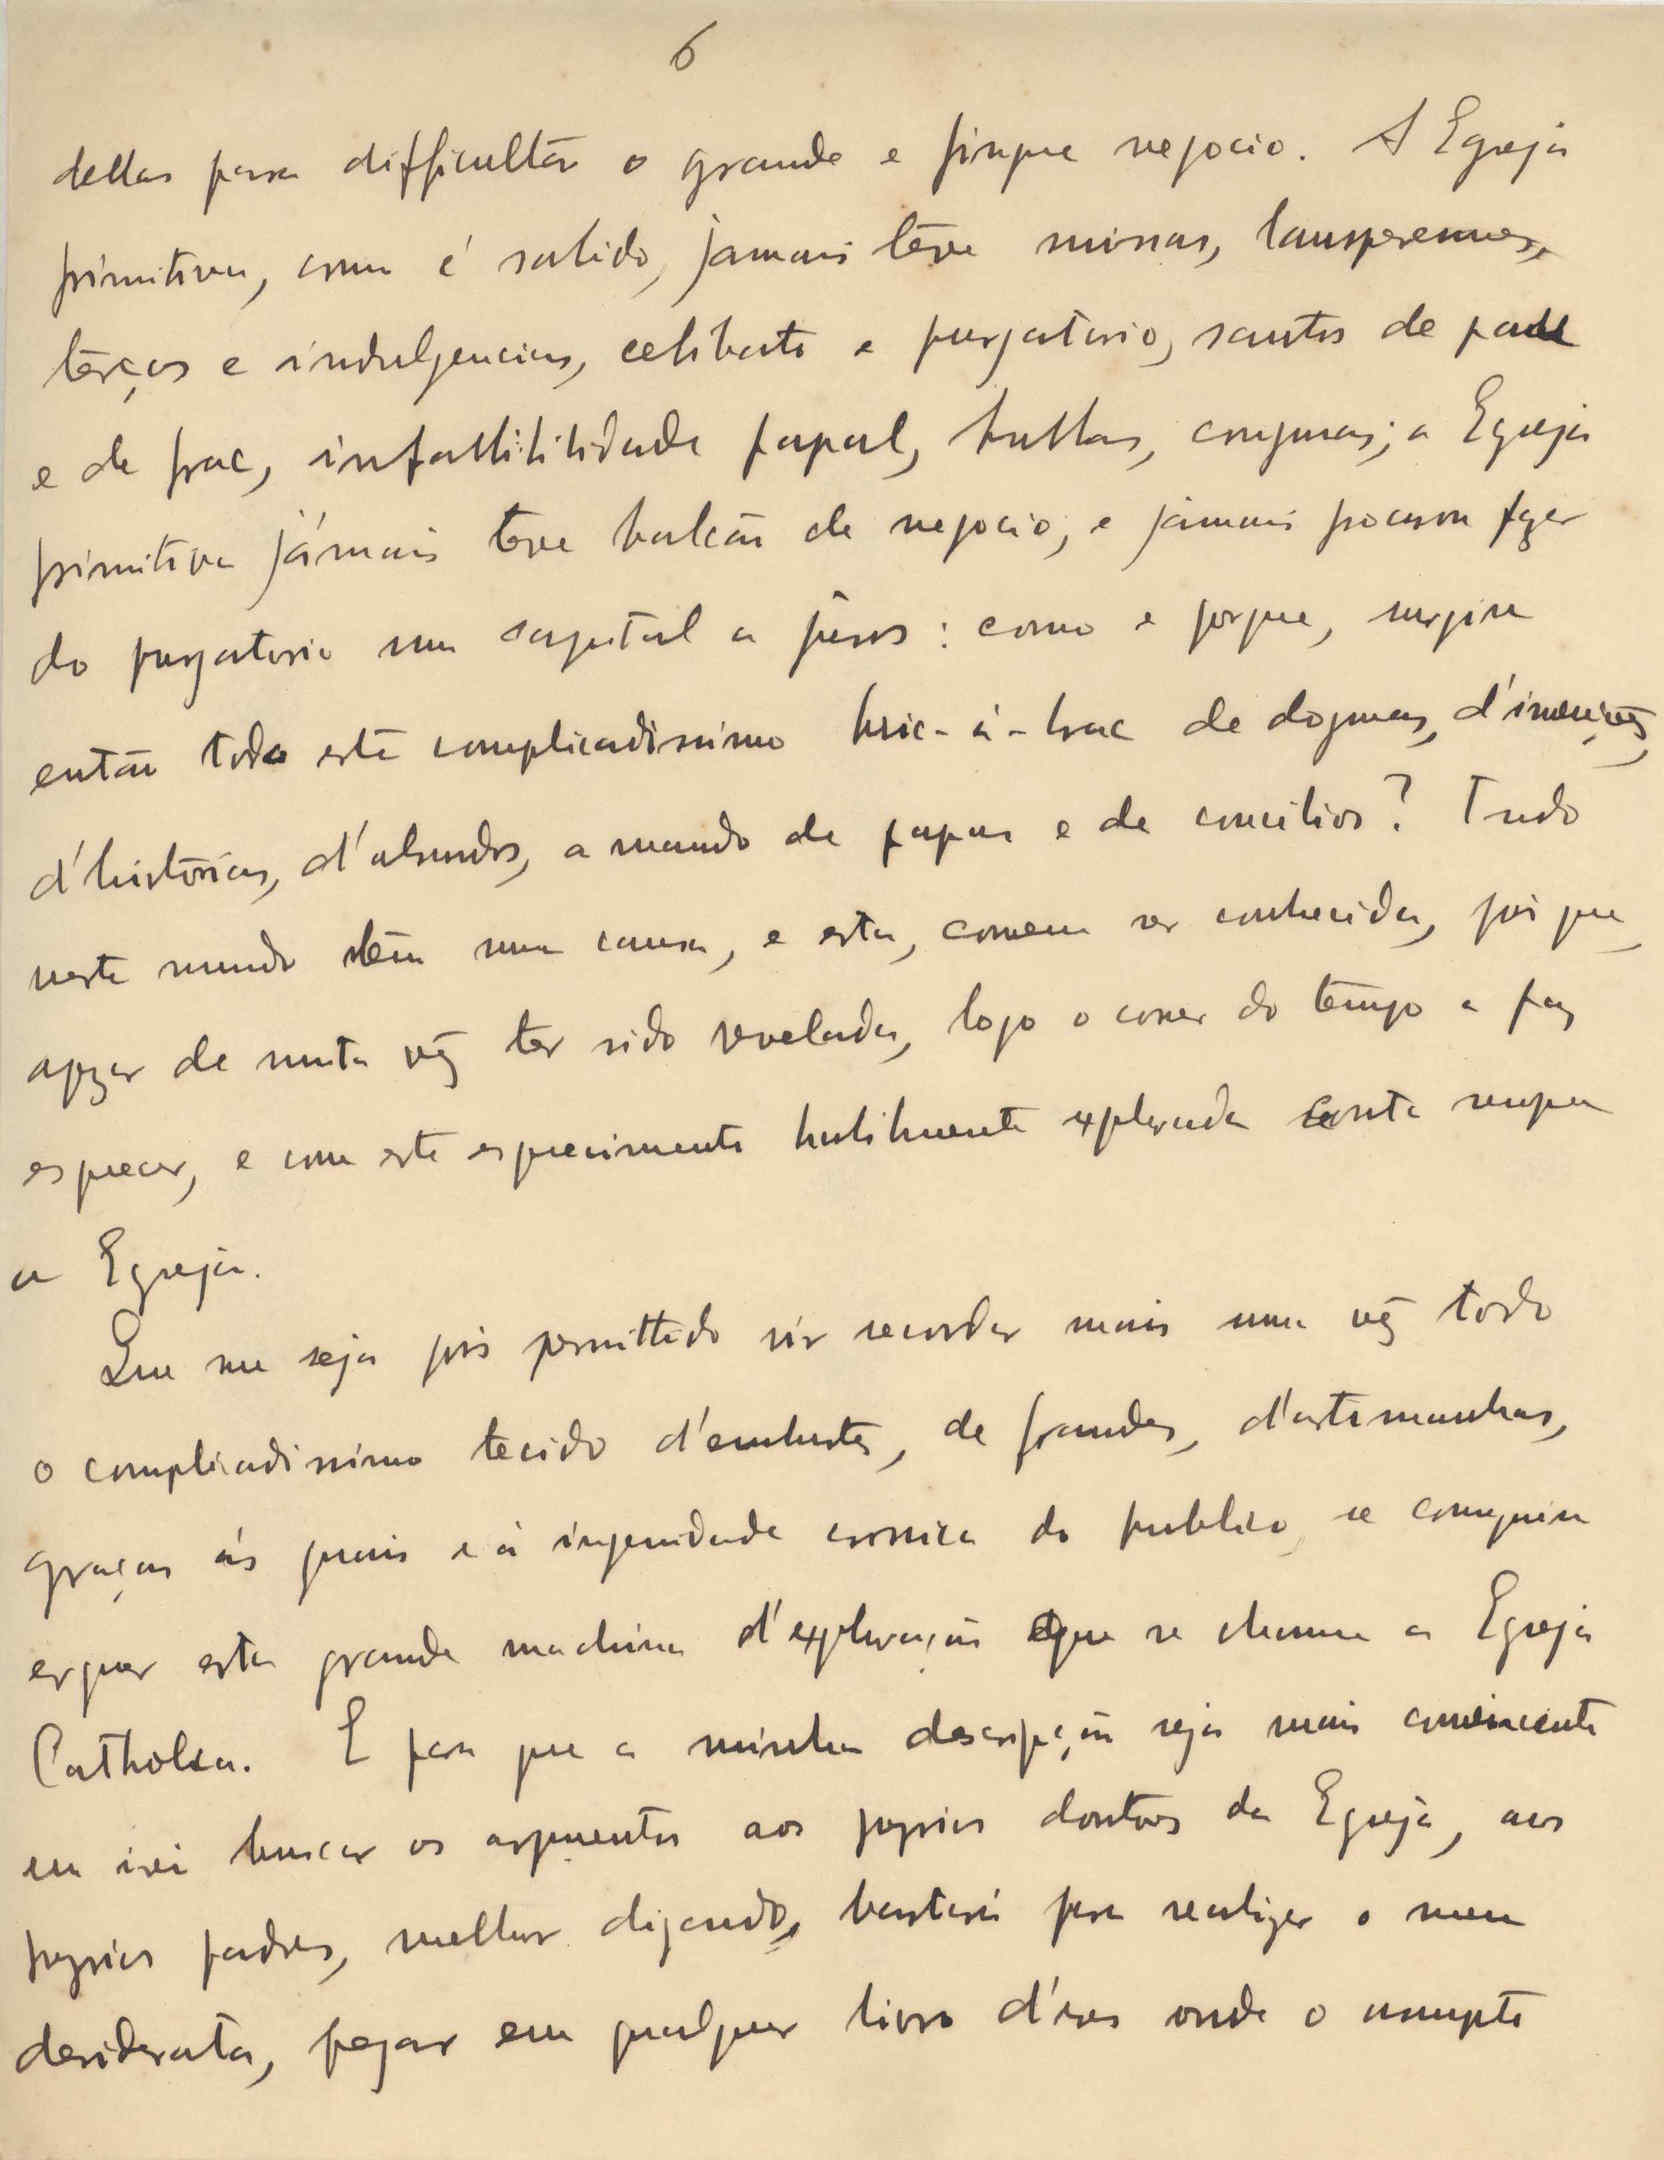 6
dellas para difficultar o grande e pingue negocio. A Egreja
primitiva, como é sabido, jámais teve missas, lausperennes,
terços e indulgencias, celibato e purgatorio, santos de
e de frac, infallibilidade papal, bullas, congruas; a Egreja
primitiva jámais teve balcão de negocio, e jámais procurou fazer
do purgatorio um capital a juros: como e porque, surgiu
então todo este complicadissimo bric-à-brac de dogmas, d'invenções,
d'historias, d'absurdos, a mando de papas e de concilios? Tudo
neste mundo tem uma causa, e esta, convem ser conhecida, pois que,
apezar de muita vez ter sido revelada, logo o correr do tempo a faz
esquecer, e com este esquecimento habilmente explorado conta sempre
a Egreja.
Que me seja pois permittido vir recordar mais uma vez todo
o complicadissimo tecido d'embustes, de fraudes, d'artimanhas,
graças ás quais e á ingenuidade cronica do publico, se conseguiu
erguer esta grande machina d'exploração que se chama a Egreja
Catholica. E para que a minha descripção seja mais convincente
eu irei buscar os argumentos aos proprios doutores da Egreja, aos
proprios padres, melhor dizendo, bastará para realizar o meu
desiderata, pegar em qualquer livro d'eses onde o